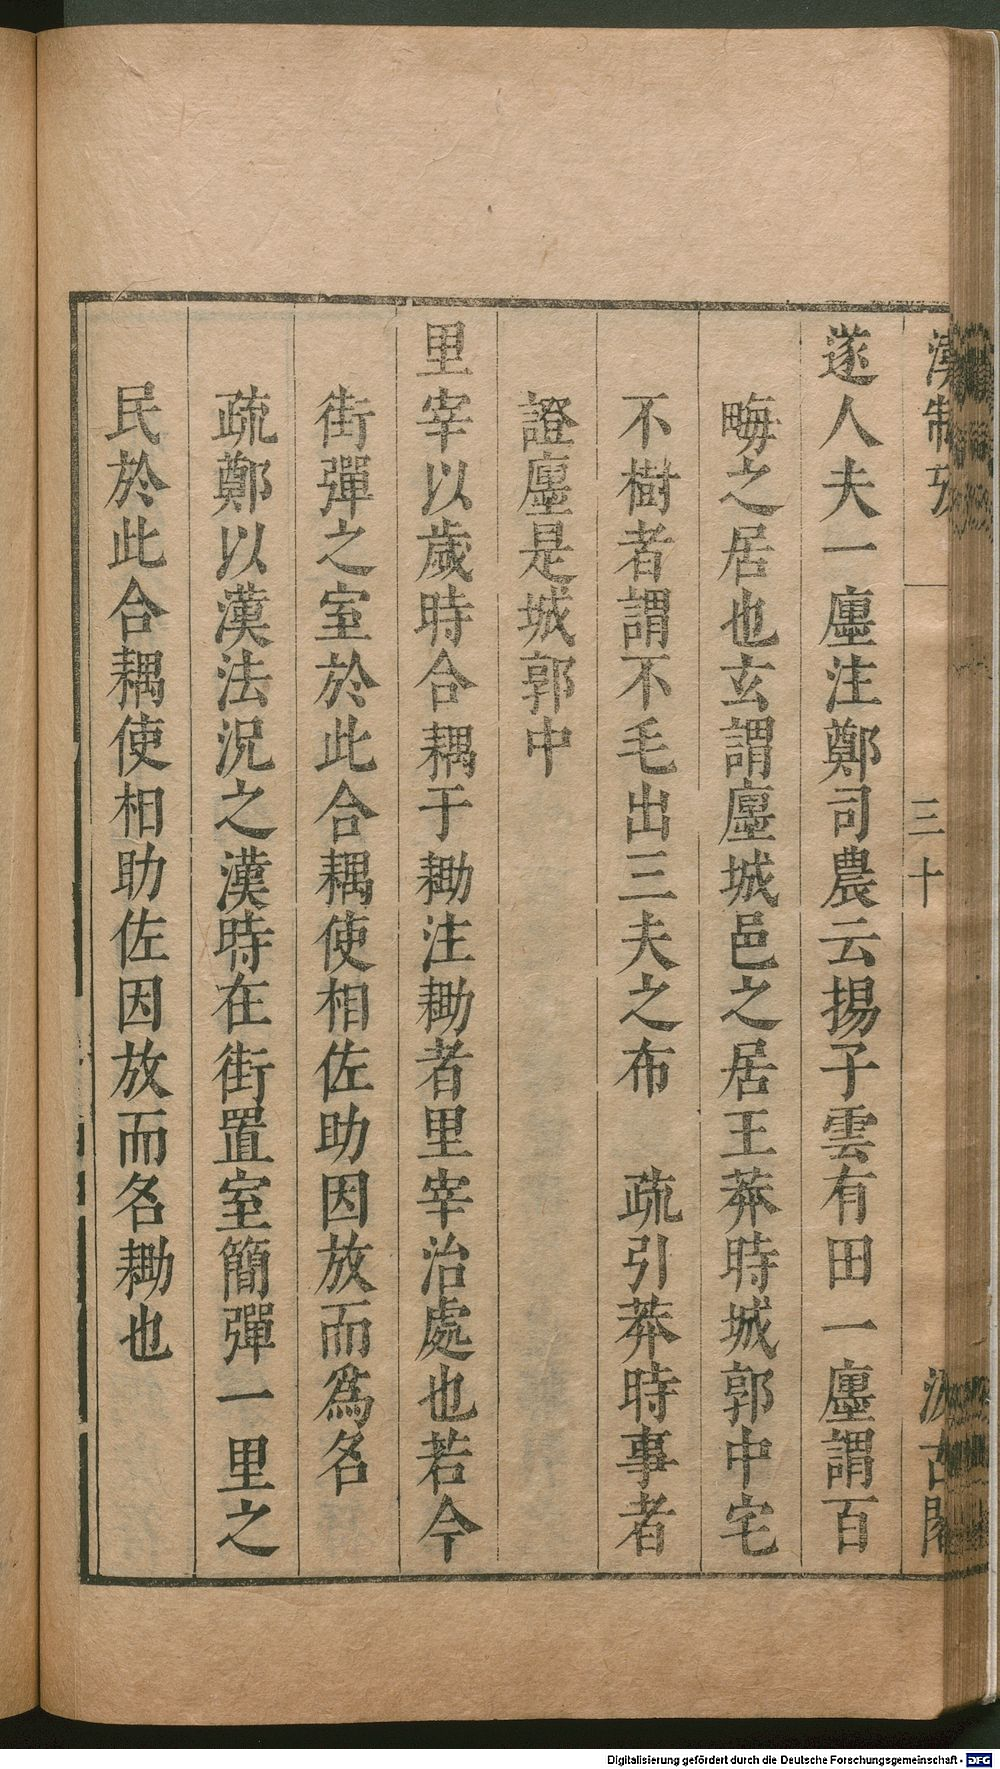 漢制攷
三十
汲古閣
遂人夫一廛注鄭司農云揚子雲有田一廛謂百
畮之居也玄謂廛城邑之居王莽時城郭中宅
不樹者謂不毛出三夫之布　疏引莽時事者
證廛是城郭中
里宰以歲時合耦于耡注耡者里宰治處也若今
街彈之室於此合耦使相佐助因放而爲名
疏鄭以漢法況之漢時在街置室簡彈一里之
民於此合耦使相助佐因放而名耡也
Digitalisierung gefördert durch die Deutsche Forschungsgemeinschaft - DFG